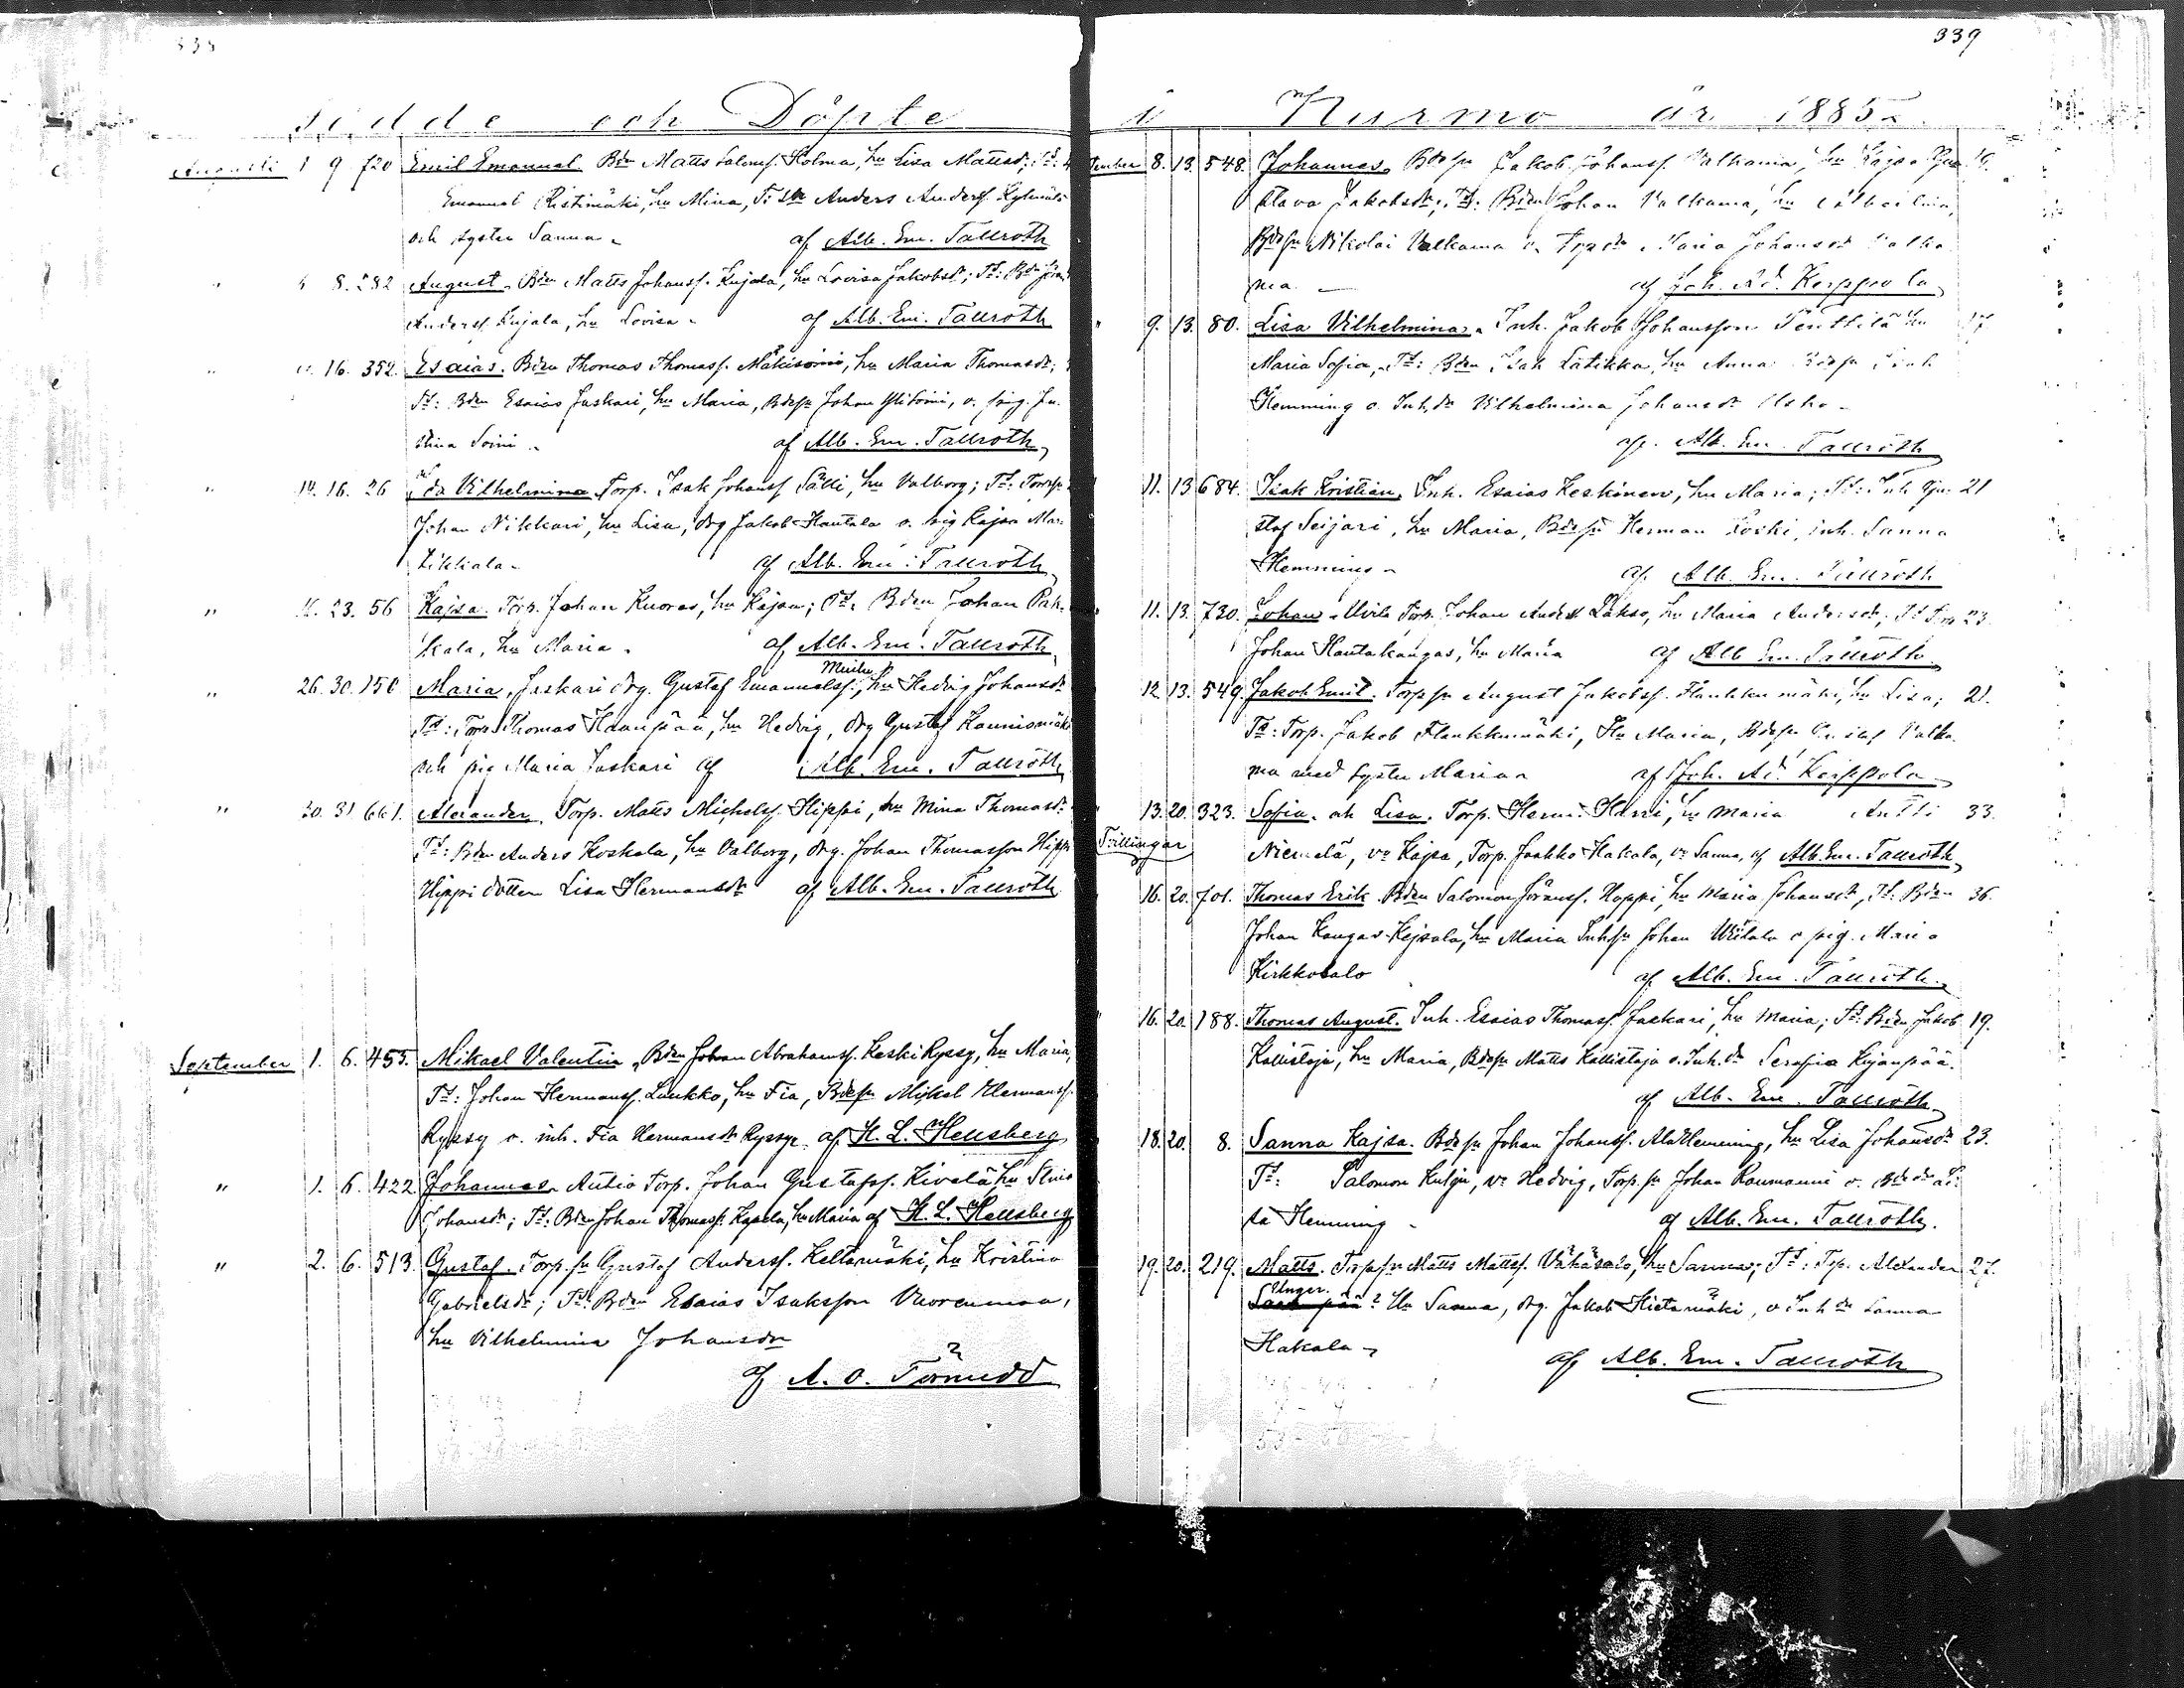 338
Födde och Döpte
Augusti 1 9 720 Emil Emanuel. Bdn Matts Saloms. Holma, hu Lisa Mattsdr; Td:
Emanuel Ristimäki, hu Mina, Anders Anders. Kylmälä
och syster Sanna. af Alb. Em. Tallroth
" 4 8. 282 August. Bdn Matts Johanss. Kujala, hu Lovisa Jakobsdr; Td: Bdn
Anders. Kujala, hu Lovisa. af Alb. Em. Tallroth
" 16. 352. Esaias. Bden Thomas Thomass. Mäkisoini, hu Maria Thomasdr;
Td: Bden Esaias Jaskari, hu Maria, Bdesn Johan Ylisoini, o. pig. Ju-
stina Soini. af Alb. Em. Tallroth
" 14. 16. 26 Ida Vilhelmina Torp. Isak Johanss Sälli, hu Valborg; Td: Torpsn
Johan Nikkari, hu Lisa, drg Jakob Hautala o. pig Kajsa Mar-
tikkala. af Alb. Em. Tallroth
" 23. 56 Kajsa. Torp. Johan Kuoras, hu Kajsa; Td: Bden Johan Pak-
kala, hu Maria. af Alb. Em. Tallroth
" 26. 30. 150 Maria, Jaskari drg. Gustaf Emanuelss., hu Hedvig Johansdr
Td: Torp Thomas Haanpää, hu Hedvig, drg Gustaf Kaunismäki
och pig Maria Jaskari af Alb. Em. Tallroth
" 30. 31 661. Alexander, Torp. Matts Michelss. Hippi, hu Mina Thomasdr
Td: Bden Anders Koskela, hu Valborg, drg. Johan Thomasson Hippi
Hippi dottern Lisa Hermansdr af Alb. Em. Tallroth
September 1. 6. 455. Mikael Valentin, Bden Johan Abrahamss. Keski Ryssy, hu Maria,
Td: Johan Hermanss. Luukko, hu Fia, Bdesn Mickel Hermanss.
Ryssy o. inh. Fia Hermansdr Ryssy. af H. L. Hellsberg
" 1. 6. 422. Johannes. Autio Torp. Johan Gustafss. Kivelä hu Stina
Johansdr; Td: Bden Johan Thomass. Kapela, hu Maria af H. L. Hellsberg
" 2. 6. 513. Gustaf. Torp.sn Gustaf Anderss. Keltamäki, hu Kristina
Gabrielsdr; Td: Bden Esaias Isaksson Vuorenmaa,
hu Vilhelmina Johansdr
af A. O. Törnudd
339
i Nurmo år 1885.
tember 8. 13. 548. Johannes, Bdesn Jakob Johanss. Valkama, hu Kajsa Gus-
tava Jakobsdr; Td: Bden Johan Valkama, hu Vilhelmina,
Bdesn Nikolai Valkama o. Torpdr Maria Johansdr Valka-
ma. af Joh. Ad. Keippola
" 9. 13. 80. Lisa Vilhelmina. Inh. Jakob Johansson Penttilä hu 17
Maria Sofia, Td: Bden Isak Latikka, hu Anna Bdesn Isak
Hemming o. Inh.dr Vilhelmina Johansdr
af. Alb. Em. Tallroth
11. 13 684. Isak Kristian, Inh. Esaias Keskinen, hu Maria; Td: Inh Gu- 21
staf Seijari, hu Maria, Bdesn Herman Koski, inh. Sanna
Hemming. af. Alb. Em. Tallroth
11. 13. 730. Johan Torp. Johan Anderss Lakso, hu Maria Andersdr; Td Torp 23.
Johan Hautakangas, hu Maria af Alb Em. Tallroth
12. 13. 549. Jakob Emil. Torpsn August Jakobss. Flankkumäki, hu Lisa; 21.
Td: Torp. Jakob Flankkumäki, Hu Maria, Bdesn Gustaf Valka-
ma med syster Maria af Joh. Ad. Keippola
13. 20. 323. Sofia och Lisa. Torp. Herm. Harri, hu Maria Antti 33.
Tvillingar Niemelä, vr Kajsa, Torp. Jaakko Hakala, vr Sanna, af Alb. Em. Tallroth
16. 20. 701. Thomas Erik. Bden Salomon Jöranss. Hoppi, hu Maria Johansdr, Td: Bden 36.
Johan Kangas-Kejsala, hu Maria Inhsn Johan Wiitala o pig. Maria
Kirkkosalo af Alb. Em. Tallroth
16. 20. 188. Thomas August. Inh. Esaias Thomass. Jaskari, hu Maria; Td: Bden Jakob 19.
Kallistoja, hu Maria, Bdesn Matts Kallistoja o. Inh.dr Serafia Kujanpää.
af Alb. Em. Tallroth
18. 20. 8. Sanna Kajsa. Bdesn Johan Johanss. Ala Hemming, hu Lisa Johansdr 23.
Td: Salomon Kulju, vr Hedvig, Torp.sn Johan Raumanni o. Bdedr Li-
sa Hemming. af Alb. Em. Tallroth.
19. 20. 219. Matts. Torpsn Matts Mattss. Vähäsalo, hu Sanna; Td: Torp. Alexander 27.
Unger. Hu Sanna, drg. Jakob Hietamäki, o Inh dr Sanna
Hakala. af Alb. Em. Tallroth